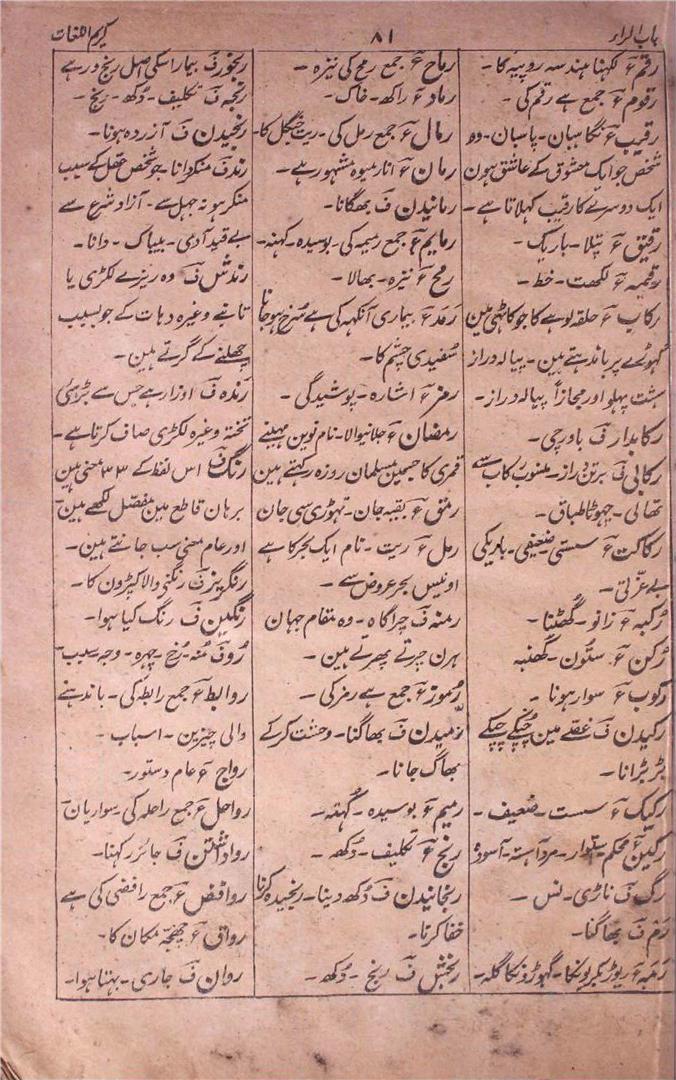 باب الراء
۸۱
کریم اللغات
رقم ؏ لکھنا ہندسہ روپیہ کا ۔
رقوم ؏ جمع ہے رقم کی ۔
رقیب ؏ نگاہبان ۔ پاسبان ۔ دو
شخص جو ایک معشوق کے عاشق ہون
ایک دوسرے کا رقیب کہلاتا ہے ۔
رقیق ؏ پتلا ۔ باریک ۔
رقیمہ ؏ لکھت ۔ خط ۔
رکاب ؏ حلقہ لوہے کا جو کاٹھی مین
گہوڑے پر باندہتے ہین ۔ پیالہ دراز
ہشت پہلو اور مجازاً پیالہ دراز ۔
رکابدار ف باورچی ۔
رکابی ف برتن دراز ۔ منسوب رکاب سے
تھالی ۔ چہوٹا طباق ۔
رکاکت ؏ سستی ۔ ضعیفی ۔ باریکی
بے عزتی ۔
رُکبہ ؏ زانو ۔ گھٹنا ۔
رُکن ؏ ستُون ۔ کھنبہ
رکوب ؏ سوار ہونا ۔
رکیدن ف غصے مین چُپکے چپکے
بڑبڑانا ۔
رکیک ؏ سست ۔ ضعیف ۔
رکین ؏ محکم ۔ ستوار ۔ مرد آہستہ ۔ آسودہ
رگ ف ناڑی ۔ نس ۔
رَم ف بھاگنا ۔
رَمہ ؏ ریوڑ بکریونکا ۔ گہوڑونکا گلہ ۔
رماح ؏ جمع رمح کی نیزہ ۔
رماد ؏ راکھ ۔ خاک ۔
رمال ؏ جمع رمل کی ۔ ریت جنگل کا ۔
رمان ؏ انار میوہ مشہور ہے ۔
رمانیدن ف بھگانا ۔
رمایم ؏ جمع رمیمہ کی ۔ بوسیدہ ۔ کہنہ ۔
رمح ؏ نیزہ ۔ بھالا ۔
رَمَد ؏ بیماری آنکہہ کی ہے سُرخ ہوجانا
سُفیدی چشم کا ۔
رمز ؏ اشارہ ۔ پوشیدگی ۔
رمضان ؏ جلانیوالا ۔ نام نوین مہینے
قمری کا جسمین مسلمان روزہ رکہتے ہین
رمق ؏ بقیہ جان ۔ تہوڑی سی جان
رمل ؏ ریت ۔ نام ایک بحر کا ہے
اونیس بحر عروض سے ۔
رمنہ ف چراگاہ ۔ وہ مقام جہان
ہرن چرتے پھرتے ہین ۔
رُموز ؏ جمع ہے رمز کی ۔
رَمیدن ف بھاگنا ۔ وحشت کر کے
بھاگ جانا ۔
رمیم ؏ بوسیدہ ۔ کُہنہ ۔
رنج ؏ تکلیف ۔ دُکھ ۔
رنجانیدن ف دُکھ دینا ۔ رنجیدہ کرنا
خفا کرنا ۔
رنجش ف رنج ۔ دُکھ ۔
رنجور ف بیمار اسکی اصل رنج ور ہے
رنجہ ف تکلیف ۔ دُکھ ۔ رنج ۔
رنجیدن ف آزردہ ہونا ۔
رند ف منکر دانا ۔ جو شخص عقل کے سبب
منکر ہو نہ جہل سے ۔ آزاد شرع سے
بے قید آدمی ۔ بیباک ۔ دانا ۔
رندش ف وہ ریزے لکڑی یا
تانبے وغیرہ دہات کے جو بسبب
چھلنے کے گرتے ہین ۔
رَندہ ف اوزار ہے جس سے بڑھئی
تختہ وغیرہ لکڑی صاف کرتا ہے ۔
رنگ ف اس لفظ کے ۳۳ معنی ہین
برہان قاطع مین مفصّل لکھے ہین
اور عام معنی سب جانتے ہین ۔
رنگریز ف رنگنے والا کپڑون کا ۔
رنگین ف رنگ کیا ہوا ۔
رُو ف مُنہ ۔ رُخ ۔ چہرہ ۔ وجہ سبب ۔
روابط ؏ جمع رابطہ کی ۔ باندہنے
والی چیزین ۔ اسباب ۔
رواج ؏ عام دستور ۔
رواحل ؏ جمع راحلہ کی ۔ سواریان ۔
روا داشتن ف جائز رکہنا ۔
روافض ؏ جمع رافضی کی ہے
رواق ؏ چھجّہ مکان کا ۔
روان ف جاری ۔ بہتا ہوا ۔